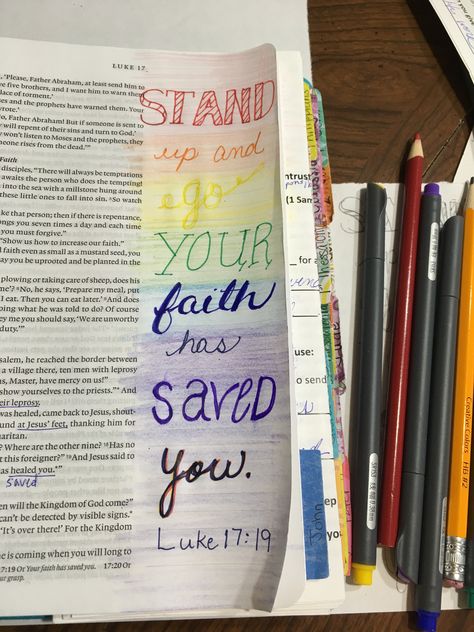 LUKE 17
'Please, Father Abraham, at least send him to
five brothers, and I want him to warn them
place of torment.'
and the prophets have warned them. Your
wrote.'
Father Abraham! But if someone is sent to
will repent of their sins and turn to God.'
won't listen to Moses and the prophets, they
one rises from the dead.'"
Faith
disciples, "There will always be temptations
awaits the person who does the tempting!
into the sea with a millstone hung around
these little ones to fall into sin. So watch
that person; then if there is repentance,
you seven times a day and each time
must forgive."
"Show us how to increase our faith."
faith even as small as a mustard seed, you
you be uprooted and be planted in the
plowing or taking care of sheep, does he
me'? No, he says, 'Prepare my meal, put
I eat. Then you can eat later.' And does
doing what he was told to do? Of course
me you should say, 'We are unworthy
duty.'"
he reached the border between
a village there, ten men with leprosy
Master, have mercy on us!"
show yourselves to the priests." And
their leprosy.
was healed, came back to Jesus, shout-
ground at Jesus' feet, thanking him for
Where are the other nine? Has no
this foreigner?" And Jesus said to
has healed you."
saved
will the Kingdom of God come?"
can't be detected by visible signs.
'It's over there!' For the Kingdom
is coming when you will long to
17:19 Or Your faith has saved you. 17:20 Or
your grasp.
STAND
up and
go
YOUR
faith
has
saved
you.
Luke 17:19
(1 Sam
for
use:
to send
John
Creative Colors HB #2